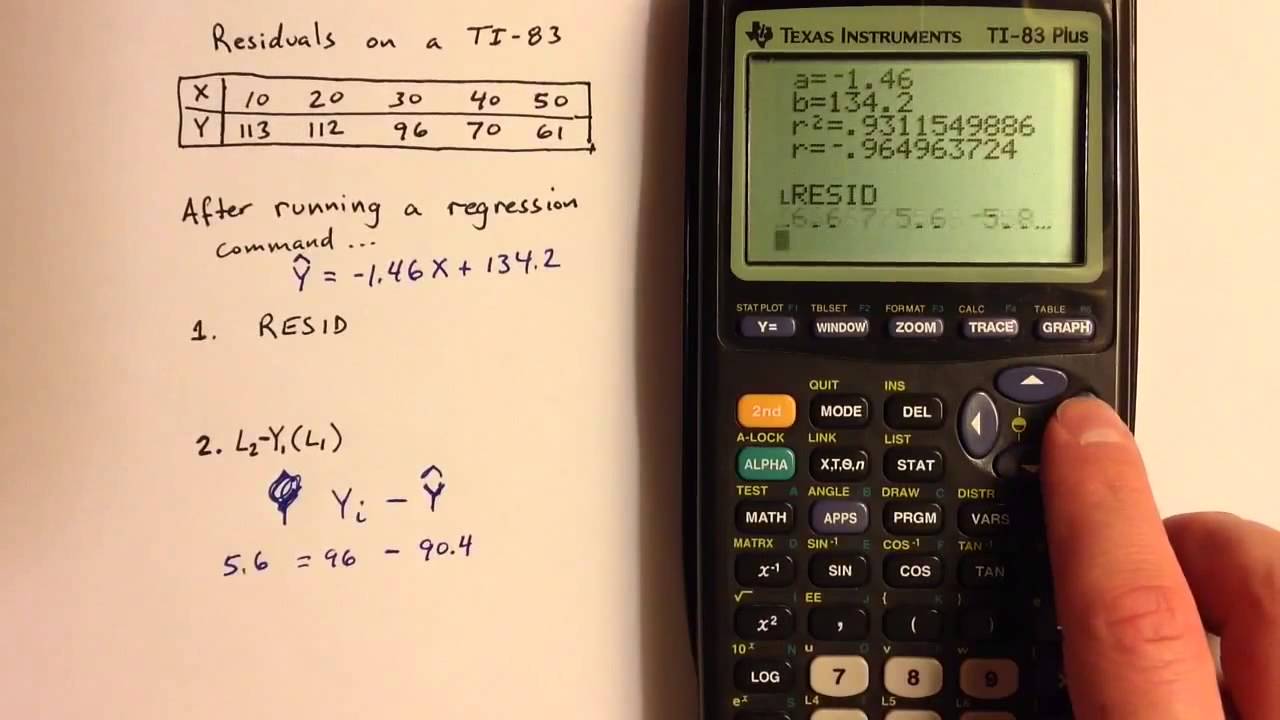 Residuals on a TI-83
X 10 20 30 40 50
Y 113 112 96 70 61
After running a regression
command...
Ŷ = -1.46X + 134.2
1. RESID
2. L₂-Y₁(L₁)
Yᵢ - Ŷ
5.6 = 96 - 90.4
TEXAS INSTRUMENTS TI-83 Plus
a=-1.46
b=134.2
r²=.9311549886
r=-.964963724
ʟRESID
STAT PLOT F1 TBLSET F2 FORMAT F3 CALC F4 TABLE F5
Y= WINDOW ZOOM TRACE GRAPH
QUIT INS
2nd MODE DEL
A-LOCK LINK LIST
ALPHA X,T,Θ,n STAT
TEST A ANGLE B DRAW C DISTR
MATH APPS PRGM VARS
MATRX D SIN⁻¹ E COS⁻¹ F TAN⁻¹
x⁻¹ SIN COS TAN
√ I EE J { K }
x² , ( )
10ˣ N u O v P w
LOG 7 8 9
eˣ S L4 T L5 U L6